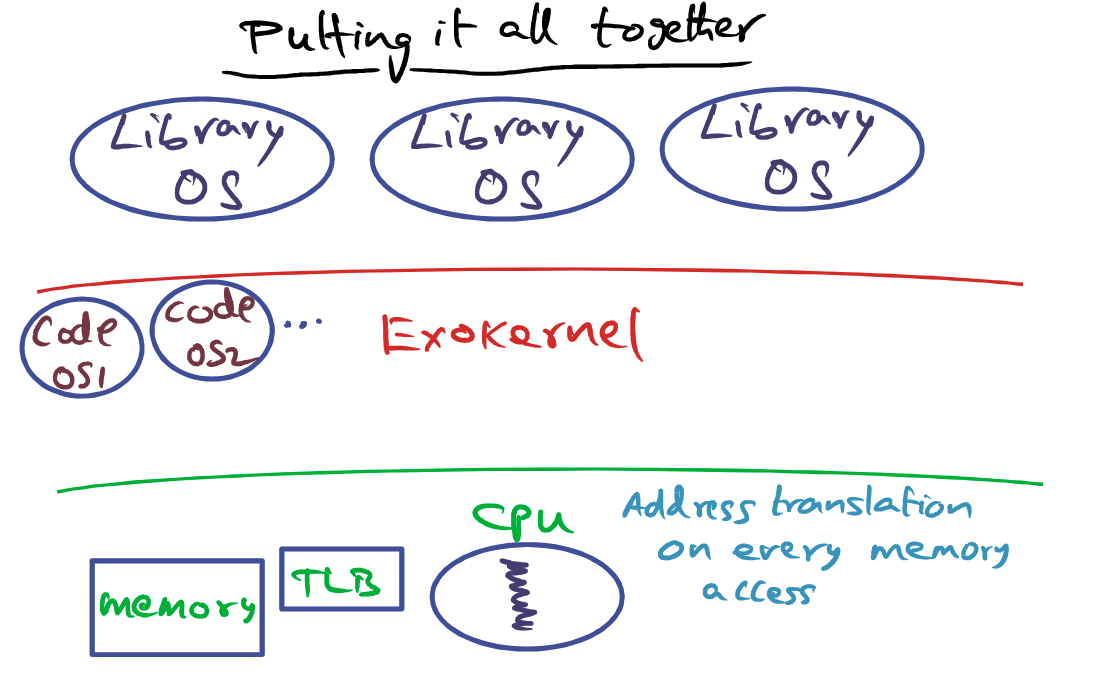 Putting it all together
Library
OS
Library
OS
Library
OS
Code
OS1
code
OS2
...
Exokernel
CPU
Address translation
on every memory
access
memory
TLB